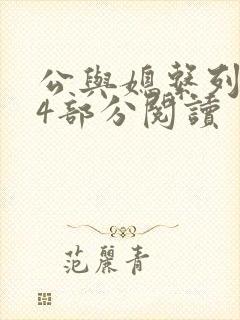 公與媳繫列
4部分閱讀
范麗青